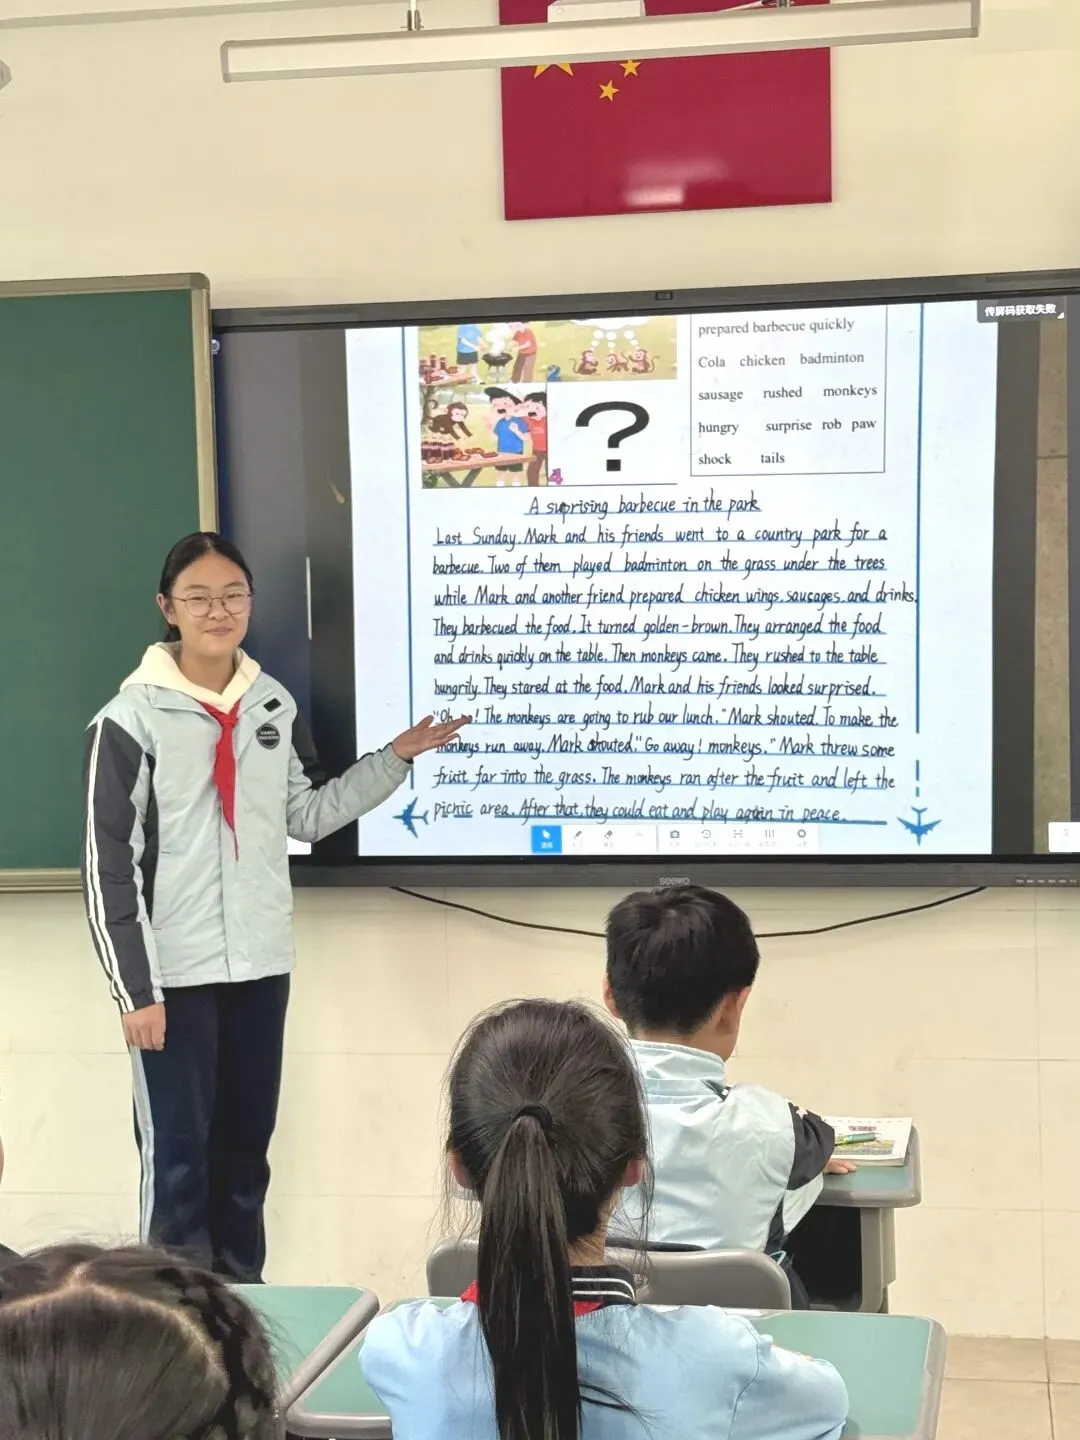 传屏码获取失败
prepared barbecue quickly
Cola chicken badminton
sausage rushed monkeys
hungry surprise rob paw
shock tails
2
3
4
?
A suprising barbecue in the park
Last Sunday, Mark and his friends went to a country park for a
barbecue. Two of them played badminton on the grass under the trees
while Mark and another friend prepared chicken wings, sausages, and drinks.
They barbecued the food. It turned golden-brown. They arranged the food
and drinks quickly on the table. Then monkeys came. They rushed to the table
hungrily. They stared at the food. Mark and his friends looked surprised.
"Oh no! The monkeys are going to rub our lunch." Mark shouted. To make the
monkeys run away, Mark shouted: "Go away! monkeys." Mark threw some
fruit far into the grass. The monkeys ran after the fruit and left the
picnic area. After that, they could eat and play again in peace.
seewo